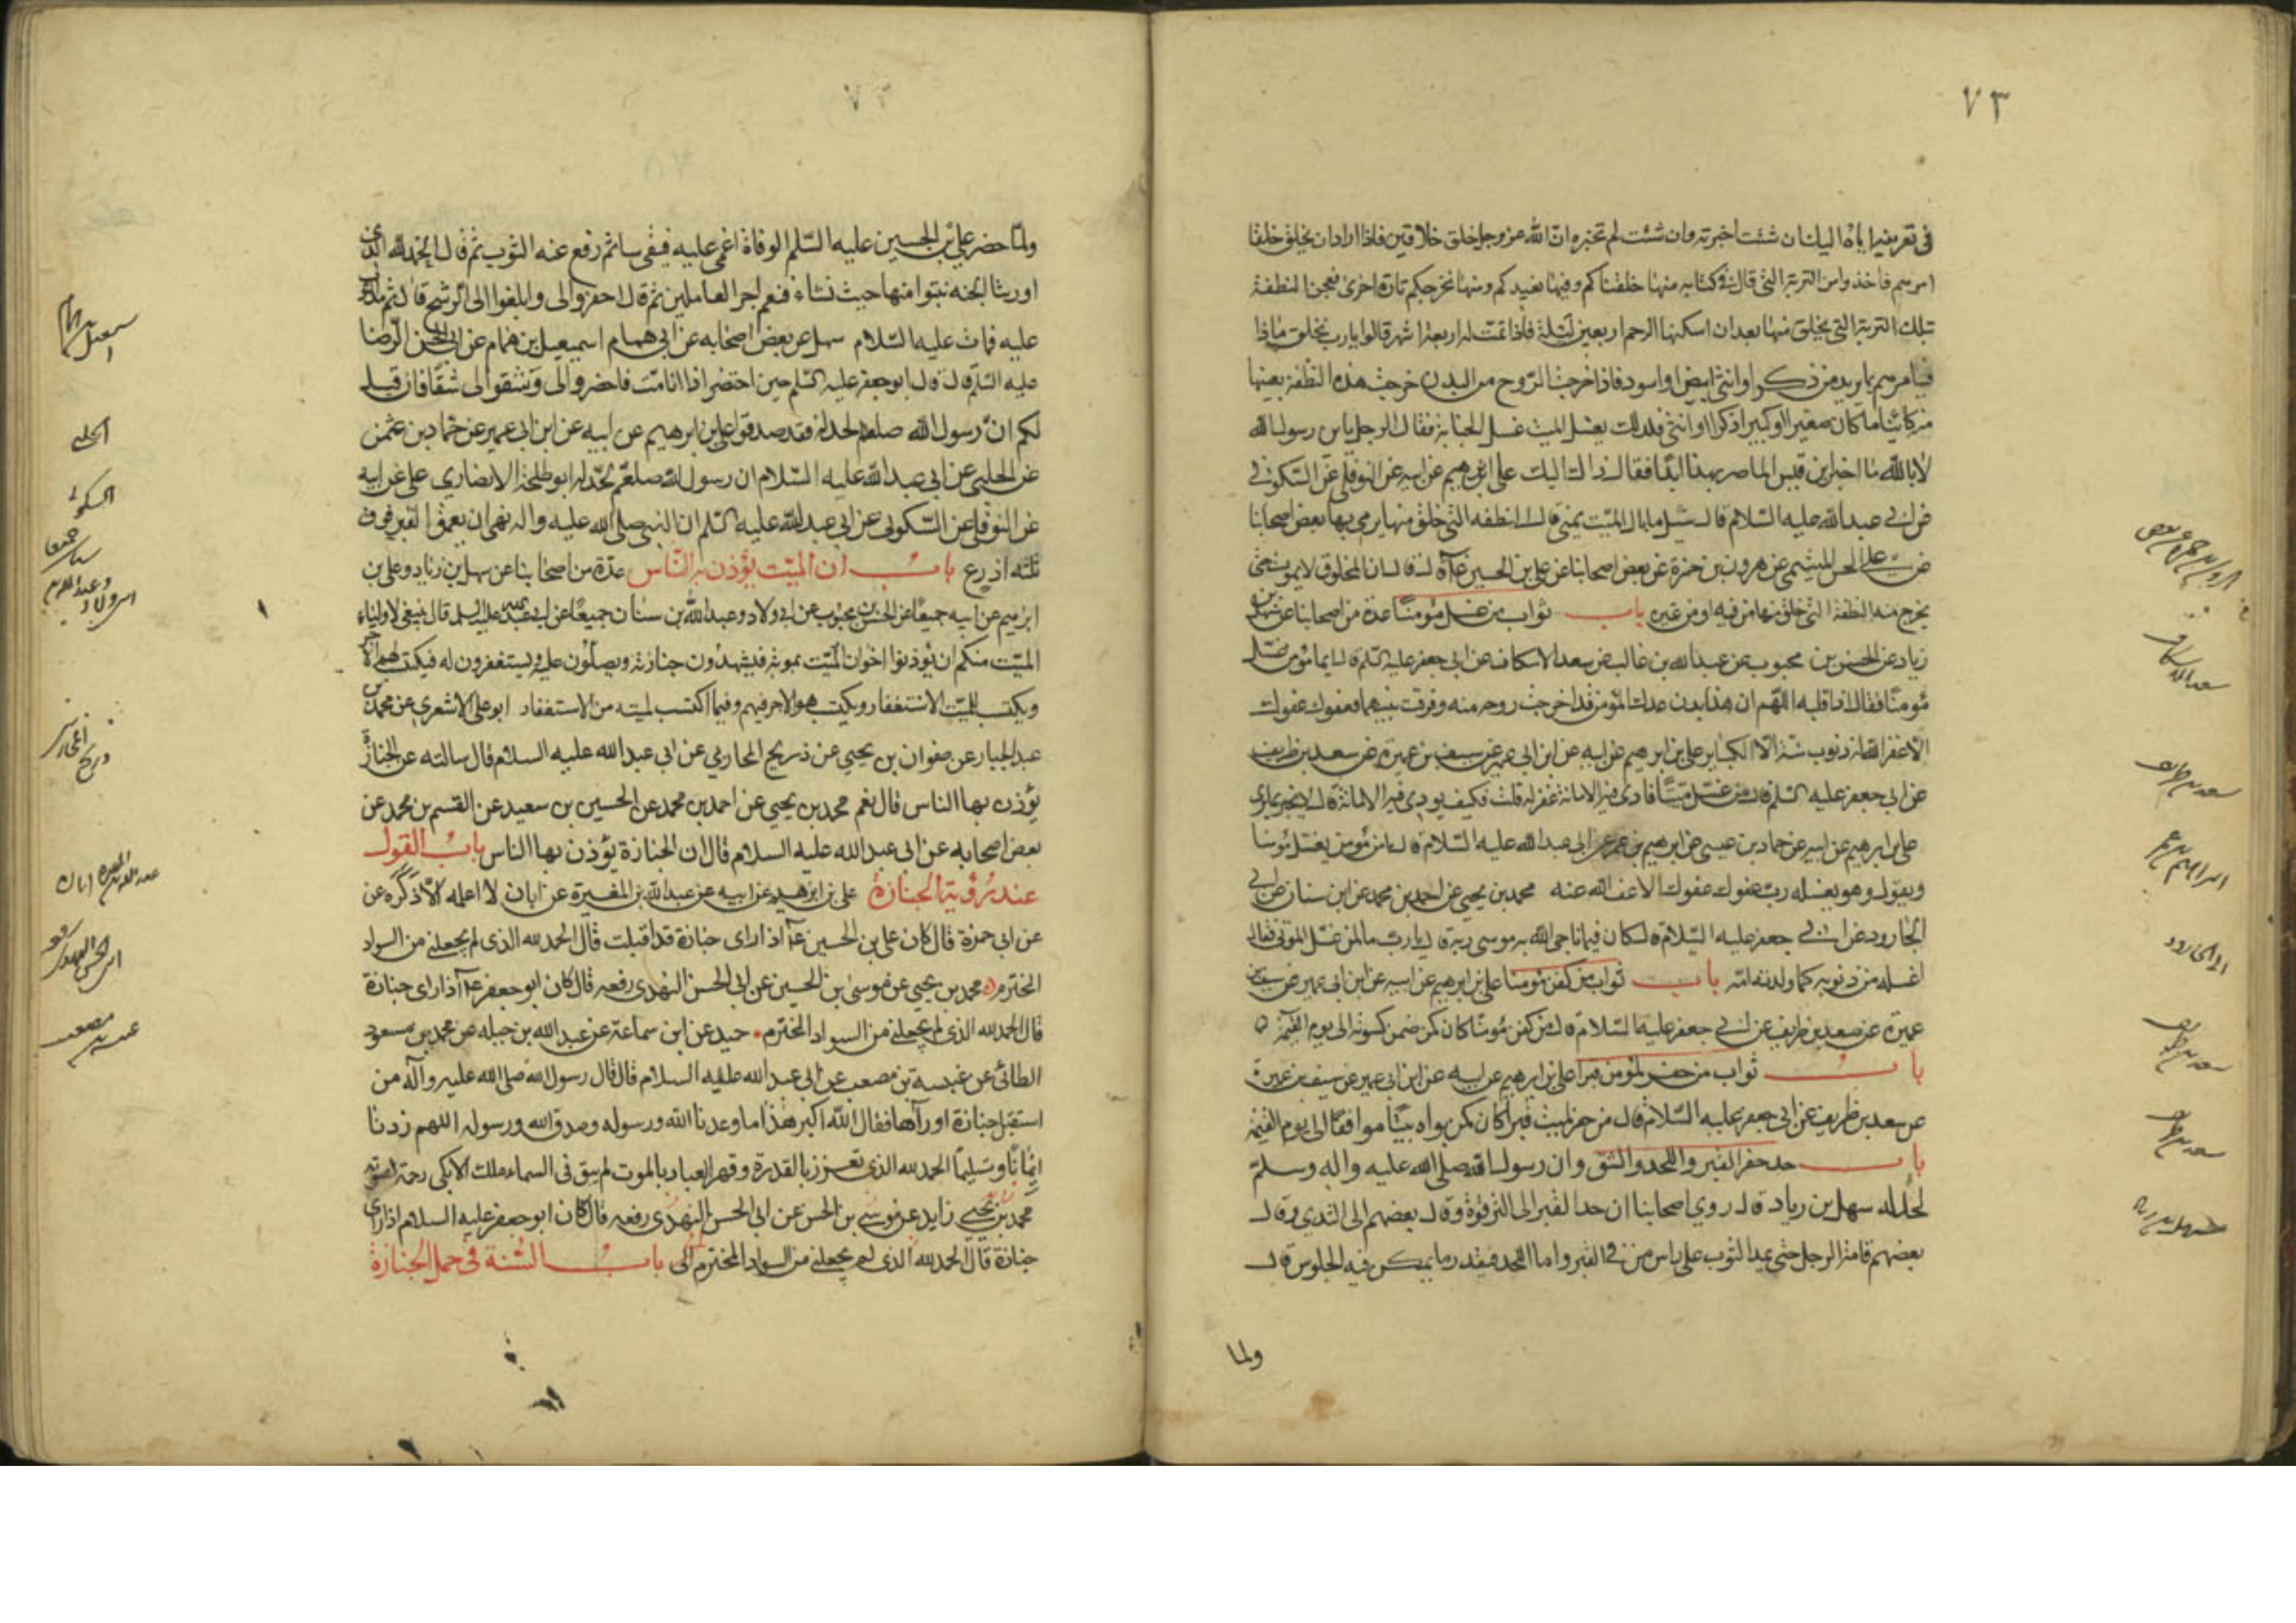 ٧٣
في تعريفه اياه اليك ان شئت اخبرته وان شئت لم تخبره ان الله عز وجل خلق خلاقين فاذا اراد ان يخلق خلقا
امرهم فاخذوا من التربة التي قال في كتابه منها خلقناكم وفيها نعيدكم ومنها نخرجكم تارة اخرى فعجن النطفة
بتلك التربة التي يخلق منها بعد ان اسكنها الرحم اربعين ليلة فاذا تمت له اربعة اشهر قالوا يارب نخلق ماذا
فيامرهم بما يريد من ذكر او انثى ابيض او اسود فاذا خرجت الروح من البدن خرجت هذه النطفة بعينها
منه كائنا ما كان صغيرا او كبيرا ذكرا او انثى فلذلك يغسل الميت غسل الجنابة فقال الرجل يابن رسول الله
لا بالله ما اخبر ابن قيس الماصر بهذا ابدا فقال ذاك اليك علي بن ابرهيم عن ابيه عن النوفلي عن السكوني
عن ابي عبد الله عليه السلام قال سئل ما بال الميت يمني قال النطفة التي خلق منها يرمي بها بعض اصحابنا
عن علي بن الحسن الميثمي عن هرون بن حمزة عن بعض اصحابنا عن علي بن الحسين ع قال قال ان المخلوق لا يموت حتى
يخرج منه النطفة التي خلق منها من فيه او من غيره باب ثواب من غسل مؤمنا عدة من اصحابنا عن سهل بن
زياد عن الحسن بن محبوب عن عبد الله بن غالب عن سعد الاسكاف عن ابي جعفر عليه السلم قال ايما مؤمن غسل
مؤمنا فقال اذا قلبه اللهم ان هذا بدن عبدك المؤمن قد اخرجت روحه منه وفرقت بينهما فعفوك عفوك
الا غفر الله له ذنوب سنة الا الكبائر علي بن ابرهيم عن ابيه عن ابن ابي عمير عن سيف بن عميرة عن سعد بن طريف
عن ابي جعفر عليه السلم قال من غسل ميتا فادى فيه الامانة غفر له قلت وكيف يودي فيه الامانة قال لا يخبر بما رى
علي بن ابرهيم عن ابيه عن حماد بن عيسى عن ابرهيم بن عمر عن ابي عبد الله عليه السلام قال ما من مؤمن يغسل مؤمنا
ويقول وهو يغسله رب عفوك عفوك الا عفا الله عنه محمد بن يحيى عن احمد بن محمد عن ابن سنان عن ابي
الجارود عن ابي جعفر عليه السلام قال كان فيما ناجى الله به موسى ربه قال يا رب ما لمن غسل الموتى فقال
اغسله من ذنوبه كما ولدته امه باب ثواب من كفن مؤمنا علي بن ابرهيم عن ابيه عن ابن ابي عمير عن سيف بن
عميرة عن سعد بن طريف عن ابي جعفر عليه السلام قال من كفن مؤمنا كان كمن ضمن كسوته الى يوم القيمة
باب ثواب من حفر لمؤمن قبرا علي بن ابرهيم عن ابيه عن ابن ابي عمير عن سيف بن عميرة
عن سعد بن طريف عن ابي جعفر عليه السلام قال من حفر لميت قبرا كان كمن بواه بيتا موافقا الى يوم القيمة
باب حد حفر القبر واللحد والشق وان رسول الله صلى الله عليه واله وسلم
لحد له سهل بن زياد قال روي اصحابنا ان حد القبر الى الترقوة وقال بعضهم الى الثدي وقال
بعضهم قامة الرجل حتى يمد الثوب على راس من في القبر واما اللحد فبقدر ما يمكن فيه الجلوس قال
ولما
سعد بن طريف
ابرهيم بن عمر
ابو الجارود
سعد بن طريف
سعد بن طريف
سهل بن زياد
ولما حضر علي بن الحسين عليه السلم الوفاة اغمي عليه فبقى ساعة ثم رفع عنه الثوب ثم قال الحمد لله الذي
اورثنا الجنة نتبوا منها حيث نشاء فنعم اجر العاملين ثم قال احفروا لى وابلغوا الى الرشح قال ثم مد الثوب
عليه فمات عليه السلام سهل عن بعض اصحابه عن ابي همام اسمعيل بن همام عن ابي الحسن الرضا
عليه السلم قال قال ابو جعفر عليه السلم حين احتضر اذا انا مت فاحفروا لى وشقوا لى شقا فان قيل
لكم ان رسول الله صلعم لحد له فقد صدقوا علي بن ابرهيم عن ابيه عن ابن ابي عمير عن حماد بن عثمن
عن الحلبي عن ابي عبد الله عليه السلام ان رسول الله صلعم لحد له ابو طلحة الانصاري علي عن ابيه
عن النوفلي عن السكوني عن ابي عبد الله عليه السلم ان النبي صلى الله عليه واله نهى ان يعمق القبر فوق
ثلثه اذرع باب ان الميت يؤذن به الناس عدة من اصحابنا عن سهل بن زياد وعلي بن
ابرهيم عن ابيه جميعا عن الحسن بن محبوب عن ابي ولاد وعبد الله بن سنان جميعا عن ابي عبد الله عليه السلم قال ينبغي لاولياء
الميت منكم ان يؤذنوا اخوان الميت بموته فيشهدون جنازته ويصلون عليه ويستغفرون له فيكتب لهم الاجر
ويكتب للميت الاستغفار ويكتب هو الاجر فيهم وفيما اكتسب لميته من الاستغفار ابو علي الاشعري عن محمد بن
عبد الجبار عن صفوان بن يحيى عن ذريح المحاربي عن ابي عبد الله عليه السلام قال سالته عن الجنازة
يؤذن بها الناس قال نعم محمد بن يحيى عن احمد بن محمد عن الحسين بن سعيد عن القسم بن محمد عن
بعض اصحابه عن ابي عبد الله عليه السلام قال ان الجنازة يؤذن بها الناس باب القول
عند رؤية الجنازة علي بن ابرهيم عن ابيه عن عبد الله بن المغيرة عن ابان لا اعلمه الا ذكره عن
عن ابي حمزة قال كان علي بن الحسين ع اذا راى جنازة قد اقبلت قال الحمد لله الذي لم يجعلني من السواد
المخترم محمد بن يحيى عن موسى بن الحسين عن ابي الحسن النهدي رفعه قال كان ابو جعفر ع اذا راى جنازة
قال الحمد لله الذي لم يجعلني من السواد المخترم حميد عن ابن سماعة عن عبد الله بن جبله عن محمد بن مسعود
الطائي عن عنبسة بن مصعب عن ابي عبد الله عليه السلام قال قال رسول الله صلى الله عليه وآله من
استقبل جنازة او رآها فقال الله اكبر هذا ما وعدنا الله ورسوله وصدق الله ورسوله اللهم زدنا
ايمانا وتسليما الحمد لله الذي تعزز بالقدرة وقهر العباد بالموت لم يبق في السماء ملك الا بكى رحمة لصوته
محمد بن يحيى زايد عن موسى بن الحسن عن ابي الحسن النهدي رفعه قال كان ابو جعفر عليه السلام اذا راى
جنازة قال الحمد لله الذي لم يجعلني من السواد المخترم الى باب السنة في حمل الجنازة
الحلبي
السكوني